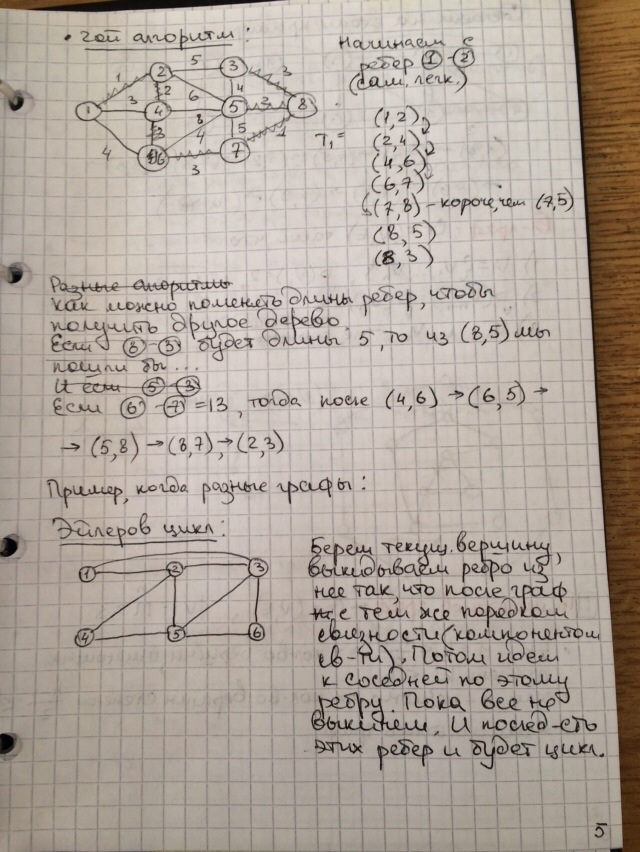 • 2ой алгоритм:
Начинаем с
ребер ① - ②
(сам. легк.)
1 5 3
2 3
1 3 2 6 4 5 3 8
4
8
4 3 4 5 1
6 7
3
T₁ =
(1,2)
(2,4)
(4,6)
(6,7)
(7,8) - короче, чем (7,5)
(8,5)
(8,3)
Разные алгоритмы
как можно поменять длины ребер, чтобы
получить другое дерево.
Если ⑤ - ③ будет длины 5, то из (8,5) мы
пошли бы ...
И если ⑤ - ③
Если ⑥ - ⑦ = 13, тогда после (4,6) → (6,5) →
→ (5,8) → (8,7), → (2,3)
Пример, когда разные графы:
Эйлеров цикл:
1 2 3
4 5 6
Берем текущ. вершину,
выкидываем ребро из
нее так, что после граф
с тем же порядком
связности (компонентом
св-ти). Потом идем
к соседней по этому
ребру. Пока все не
выкинем. И послед-сть
этих ребер и будет цикл.
5